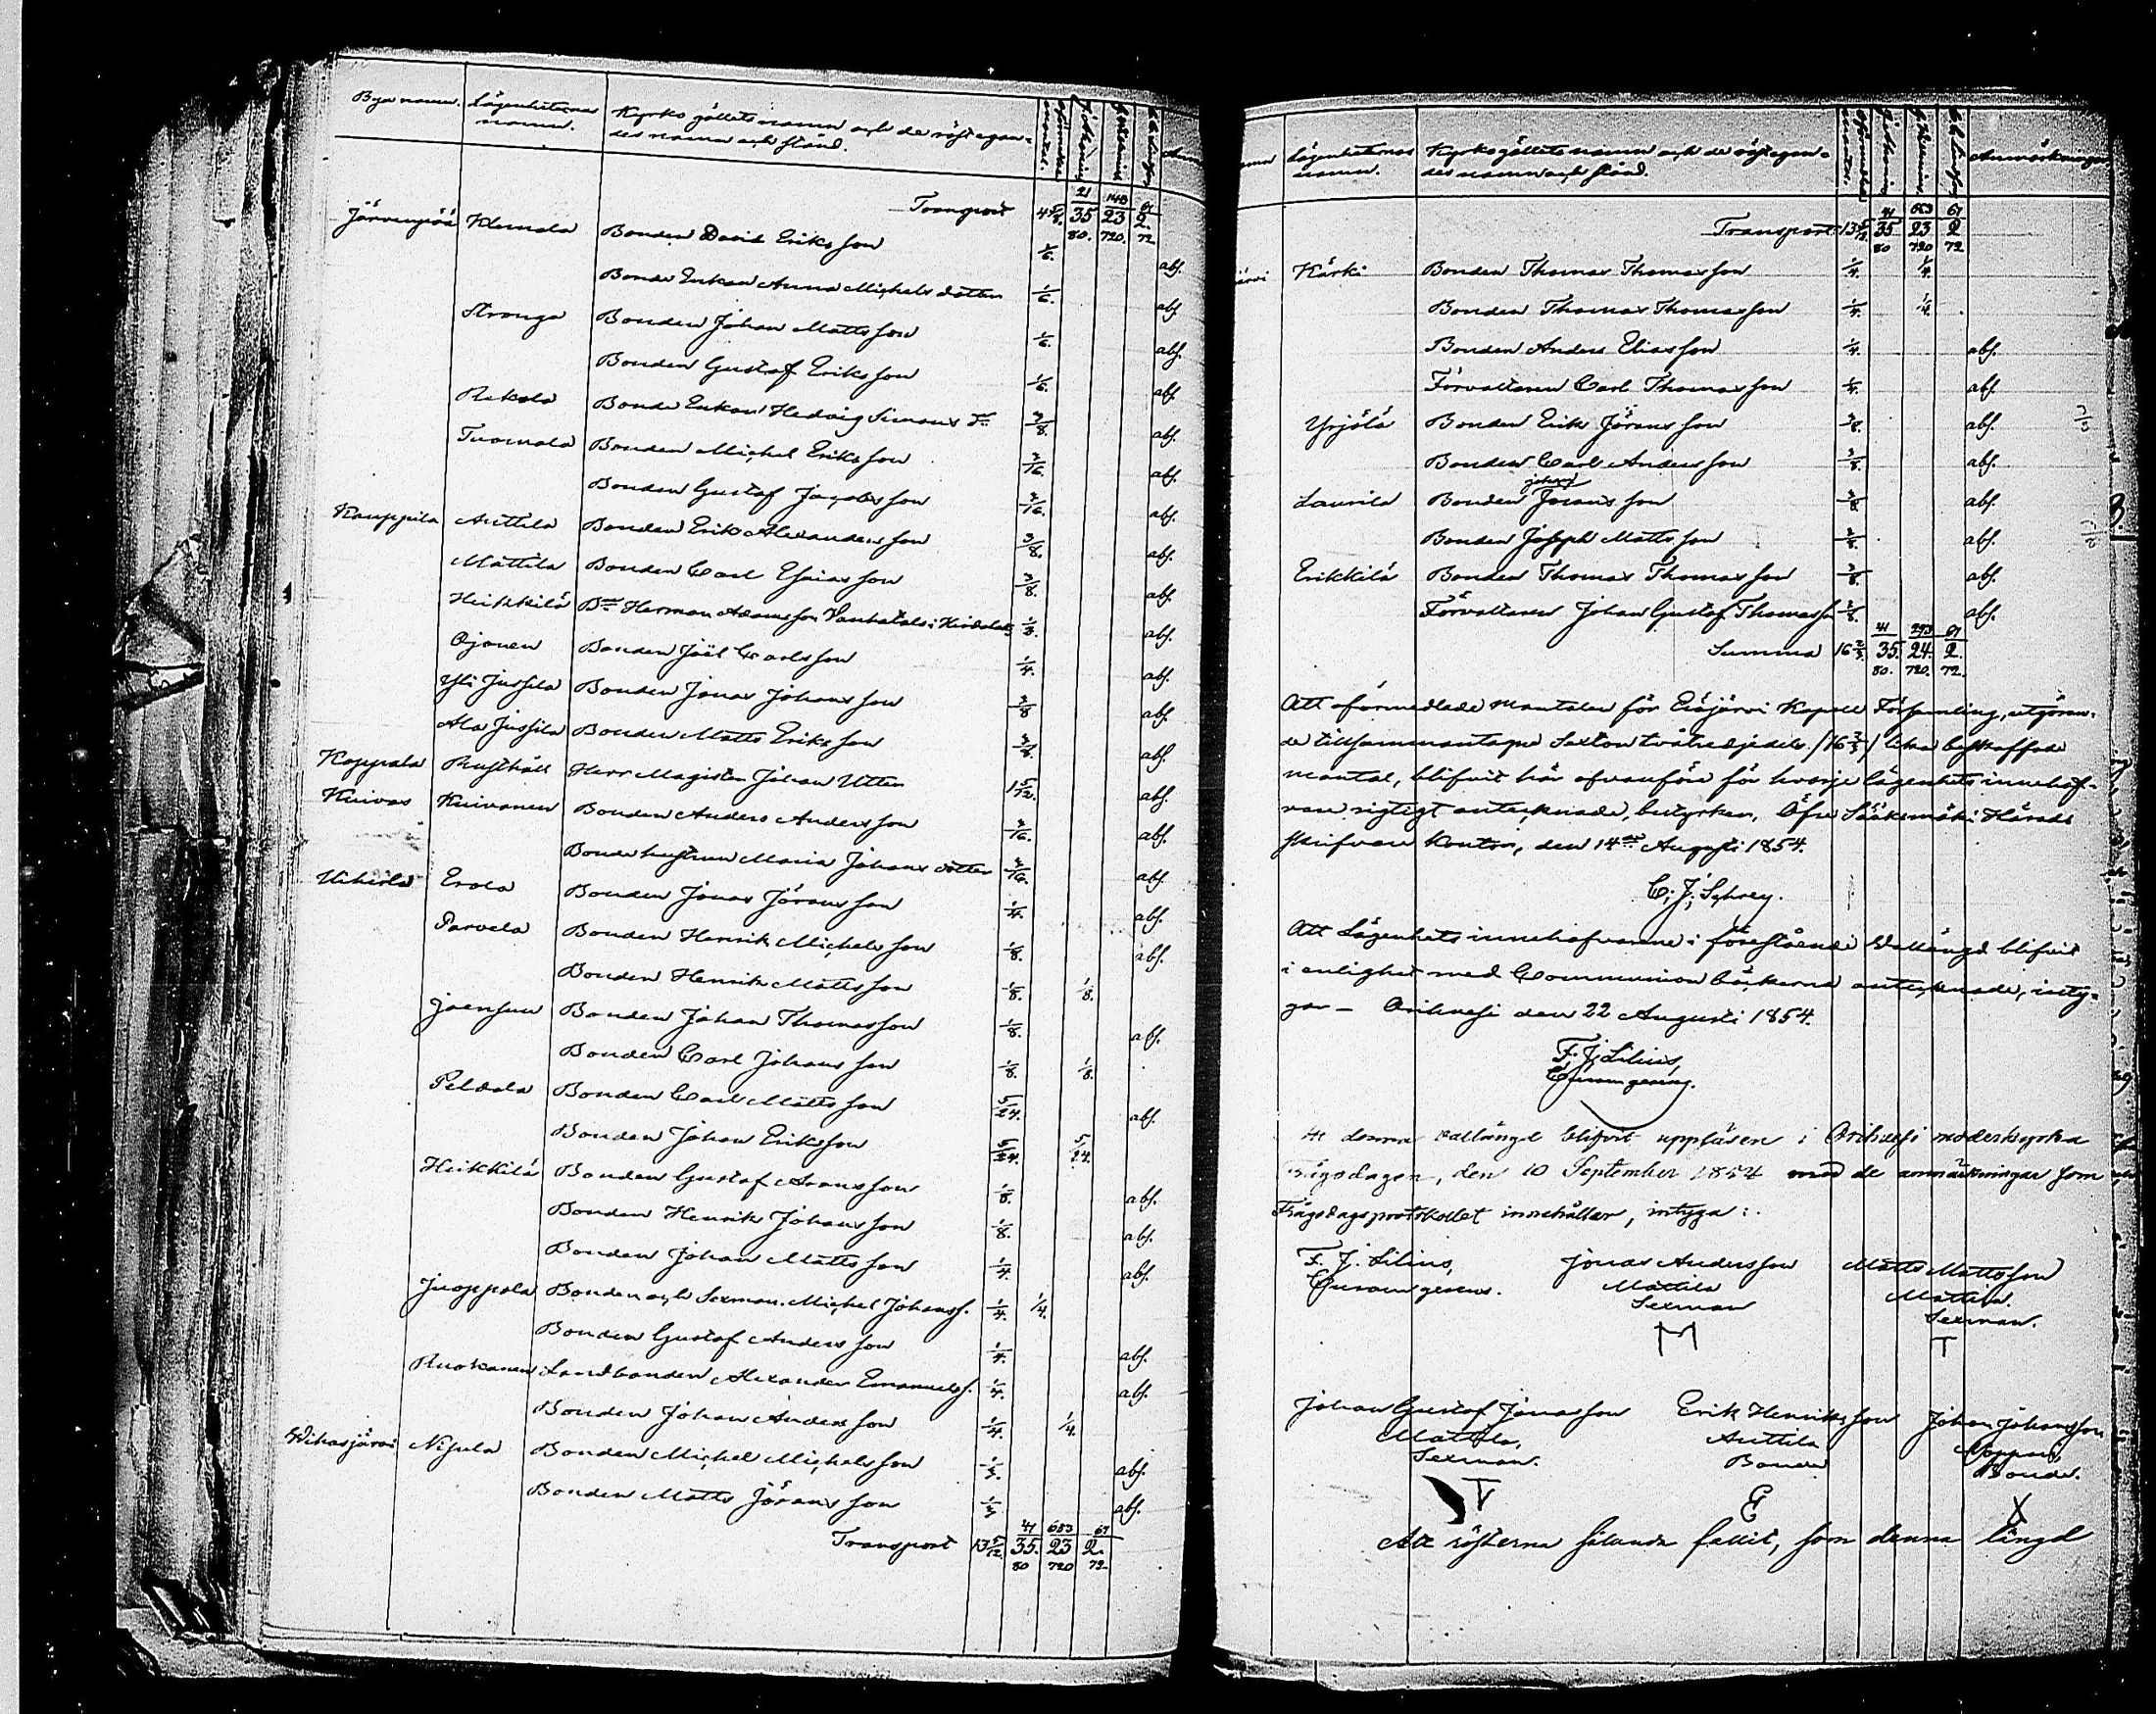 Bya namn. Lägenheternas namn. Kyrkogällets namn och de röstegan-
des namn och stånd.
Transport 4 5/8. 21 35 80. 148 23 720. 61 2. 72
Järvenpää Klemola Bonden David Eriksson 1/6. abs.
Bonde Enkan Anna Michelsdotter 1/6. abs.
Stronga Bonden Johan Mattsson 1/6. abs.
Bonden Gustaf Eriksson 1/6. abs.
Rekola Bonde Enkan Hedvig Simons Dr 3/8. abs.
Tuomala Bonden Michel Eriksson 3/16. abs.
Bonden Gustaf Jacobsson 3/16. abs.
Kauppila Anttila Bonden Erik Alexandersson 3/8. abs.
Mattila Bonden Carl Esaiasson 3/8. abs.
Heikkilä Bn Herman Adamsson Vanhatalo i 1/3. abs.
Ojanen Bonden Joël Carlsson 1/4. abs.
Yli Jussila Bonden Jonas Johansson 3/8 abs.
Ala Jussila Bonden Matts Eriksson 3/8. abs.
Koppala Rusthåll Herr Magister Johan Utter 1 5/12. abs.
Kuivas Kuivanen Bonden Anders Andersson 3/16. abs.
Bonde hustrun Maria Johansdotter 3/16. abs.
Uiherla Erola Bonden Jonas Göransson 1/4. abs.
Parvela Bonden Henrik Michelsson 1/8. abs.
Bonden Henrik Mattsson 1/8. 1/8.
Joensuu Bonden Johan Thomasson 1/8. abs.
Bonden Carl Johansson 1/8. 1/8.
Peldola Bonden Carl Mattsson 5/24. abs.
Bonden Johan Eriksson 5/24. 5/24.
Heikkilä Bonden Gustaf Aronsson 1/8. abs.
Bonden Henrik Johansson 1/8. abs.
Bonden Johan Mattsson 1/4. abs.
Juoppola Bonden och Sexman. Michel Johanss. 1/4. 1/4.
Bonden Gustaf Andersson 1/4. abs.
Ruokanen Landbonden Alexander Emanuelss. 1/4. abs.
Bonden Johan Andersson 1/4. 1/4.
Wihasjärvi Nisula Bonden Michel Michelsson 1/3. abs.
Bonden Matts Göransson 1/3 abs.
Transport 13 5/12. 41 35. 80 683 23 720 61 2. 72.
Lägenheternas namn. Kyrkogällets namn och de röstegan-
des namn och stånd. Anmärkningar
Transport 13 5/12. 41 35 80 683 23 720 61 2 72
järvi Kärki Bonden Thomas Thomasson 1/4. 1/4.
Bonden Thomas Thomasson 1/4. 1/4.
Bonden Anders Eliasson 1/4. abs.
Förvaltaren Carl Thomasson 1/4. abs.
Yrjölä Bonden Erik Göransson 3/8. abs.
Bonden Carl Andersson 3/8. abs.
Laurila Bonden Johan Göransson 3/8 abs.
Bonden Joseph Mattsson 3/8. abs.
Erikkilä Bonden Thomas Thomasson 3/8. abs.
Förvaltaren Johan Gustaf Thomasson 3/8. abs.
Summa 16 2/3. 41 35. 80. 293 24. 720. 61 2. 72.
Att oförmedlade mantalen för Eräjärvi Kapell Församling, utgöran-
de tillsammantagne Sexton tvåtredjedels /16 2/3/ lika beskaffade
mantal, blifvit här ofvanföre för hvarje lägenhets innehaf-
vare rigtigt antecknade, betyrkes, Öfre Sääksmäki Härads
skrifvare Kontor, den 14de Augusti 1854.
C. J. Schrey.
Att Lägenhets innehafvarene i förestående Vallängd blifvit
i enlighet med Communion böckerna antecknade, inty-
gar — Orihvesi den 22 Augusti 1854.
F. J. Lilius,
Curam gerens.
Att denna vallängd blifvit uppläsen i Orihvesi moderkyrka
Frågodagen, den 10 September 1854 med de anmärkningar som
Frågodagsprotokollet innehåller, intyga:
F. J. Lilius, Jonas Andersson Matts Mattsson
Curam gerens. Mattila Mattila.
Sexman Sexman.
M T
Johan Gustaf Jonasson Erik Henriksson Johan Johansson
Mattila, Anttila
Sexman. Bonde Bonde.
T E X
Att rösterna sålunda fallit, som denna längd